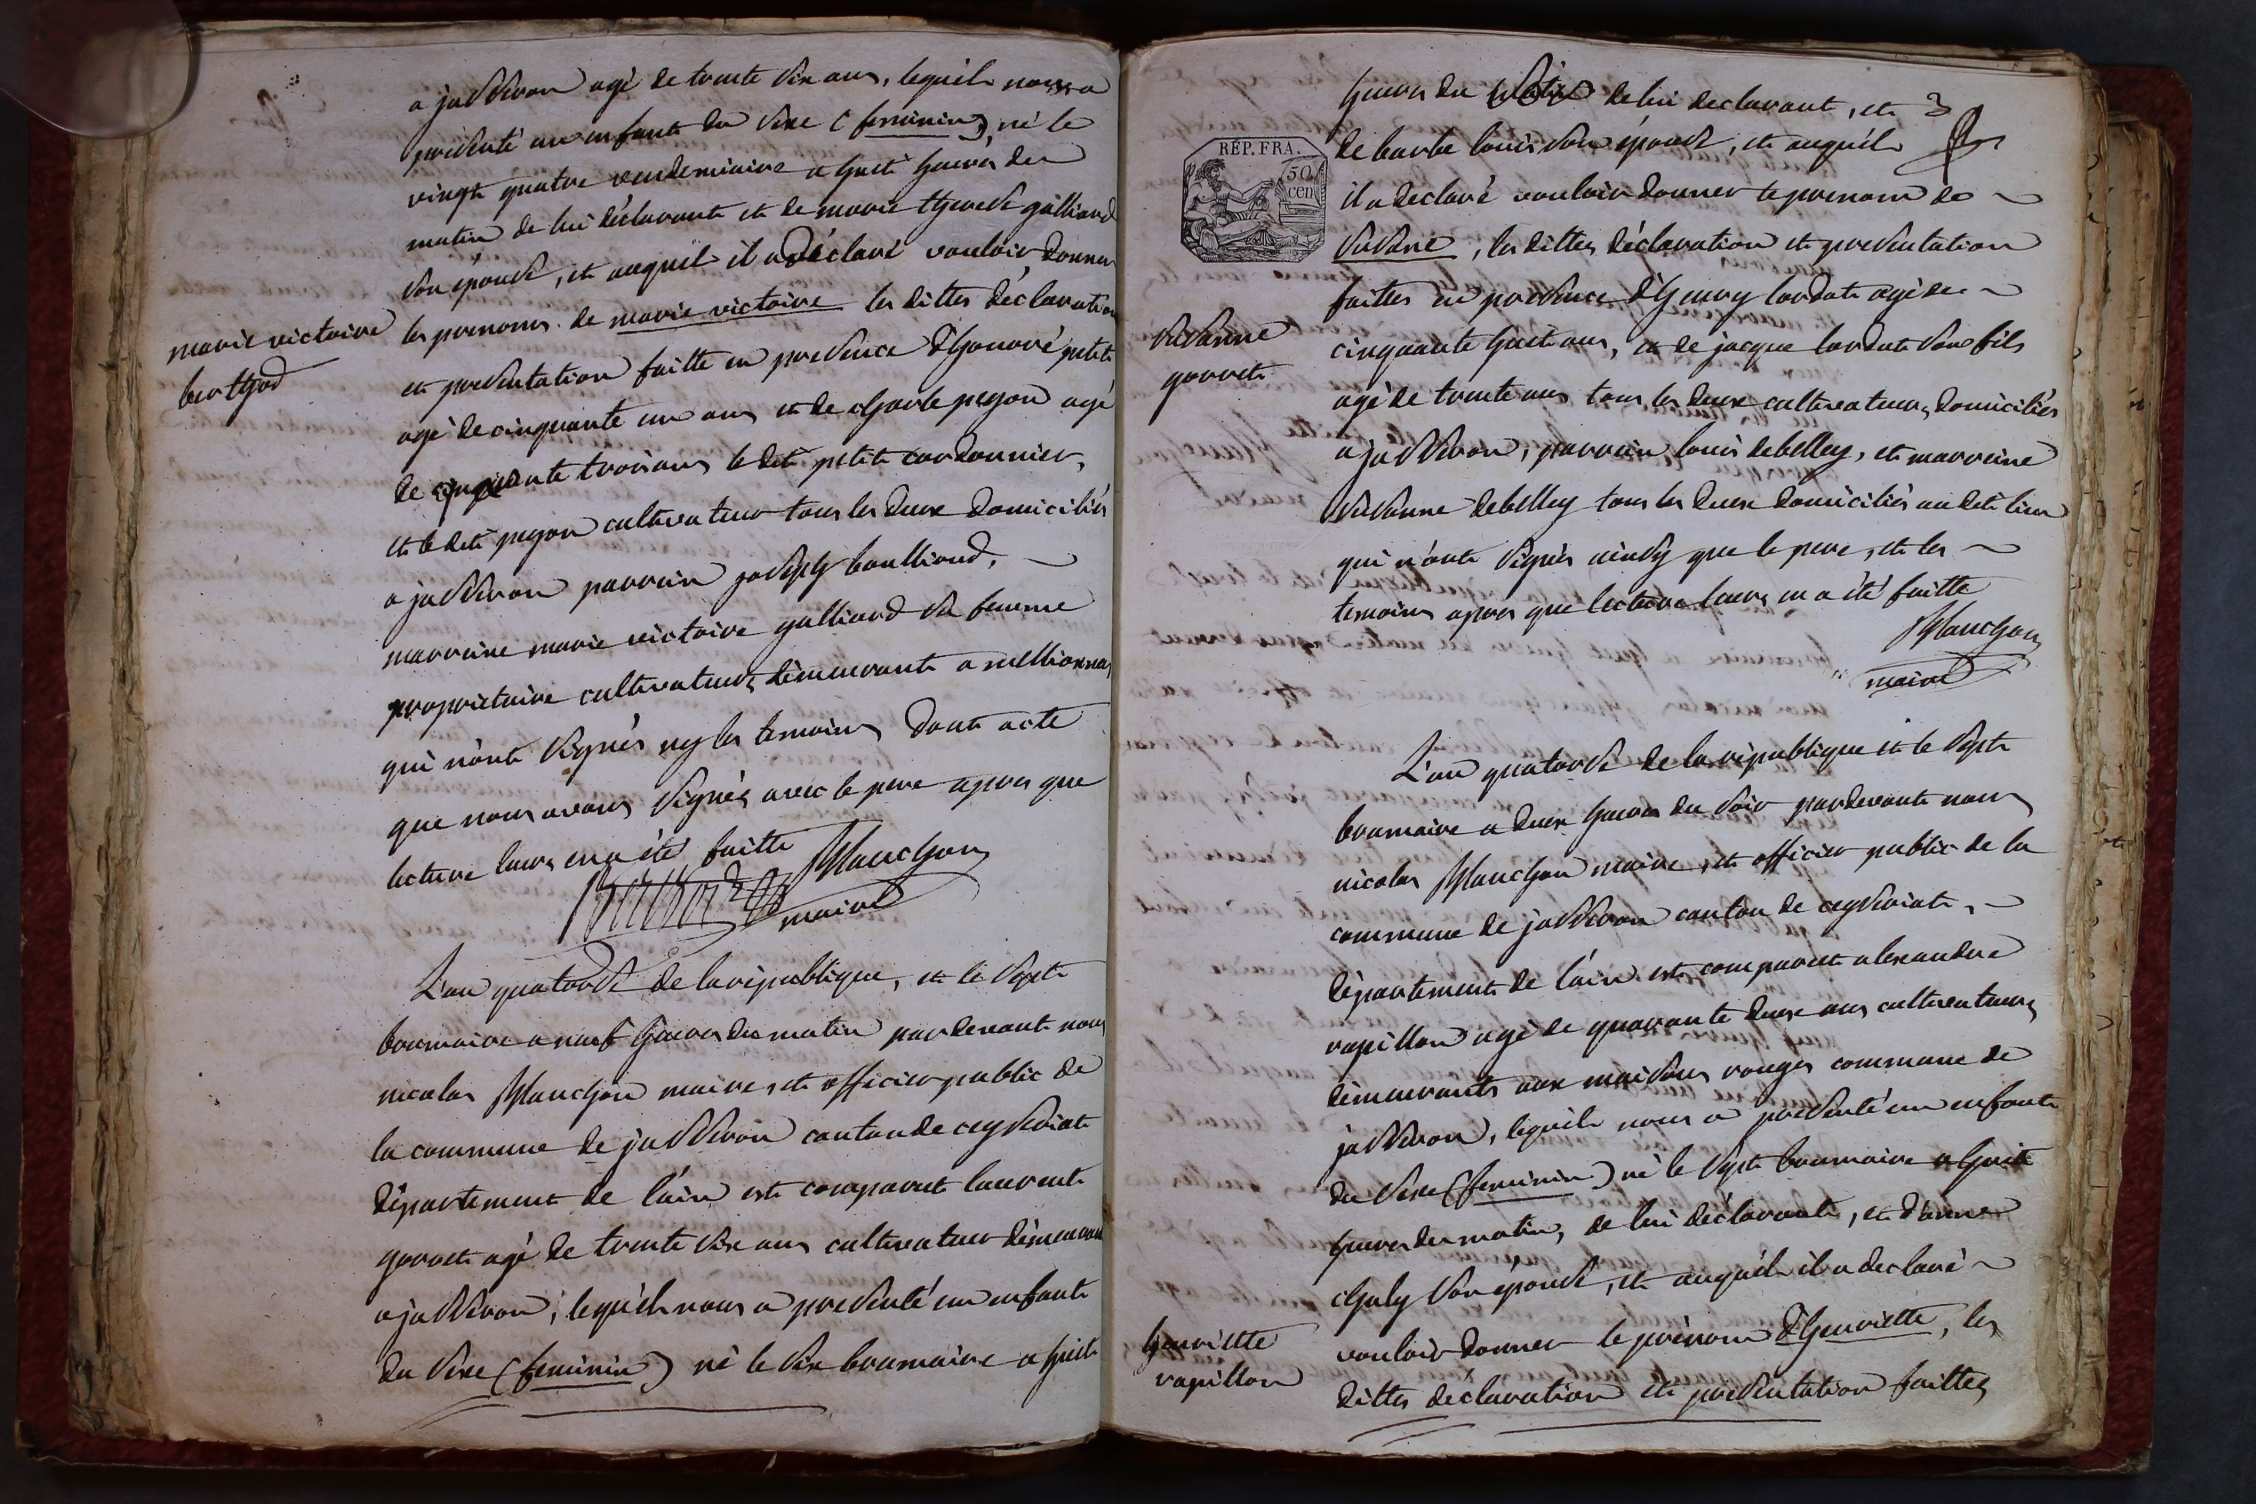 a jasseron agé de trente six ans, lequel nous a
presenté un enfant du sexe (feminin), né le
vingt quatre vendemiaire a huit heures du
matin de lui déclarant et de marie therese galliand
son épouse, et auquel il a déclaré vouloir donner
les prenoms de marie victoire les dittes déclaration
marie victoire
berthod
et presentation faitte en presence d'honoré petit
agé de cinquante un ans et de charle pegon agé
de cinquante trois ans le dit petit cordonnier,
et le dit pegon cultivateur tous les deux domiciliés
a jasseron parrein joseph boulliand,
marreine marie victoire galliand sa femme
proprietaire cultivateurs démeurant a mellionnas
qui n'ont signés ny les temoins dont acte
que nous avons signés avec le pere apres que
lecture leurs en a été faitte
Planchon
maire
L'an quatorse de la république, et le sept
brumaire a neuf heures du matin pardevant nous
nicolas Planchon maire, et officier public de
la commune de jasseron canton de ceyseriat
département de l'ain est comparut laurent
gorret agé de trente six ans cultivateur démeurant
a jasseron, lequel nous a presenté un enfant
du sexe (feminin) né le six brumaire a huit
REP. FRA.
50
cen
heures du matin de lui declarant, et
de barbe louis son épouse, et auquel
il a declaré vouloir donner le prenom de
susane, les dittes déclaration et presentation
faittes en presence d'henry lardat agé de
susanne
gorret
cinquante huit ans, et de jacque lardat son fils
agé de trente ans tous les deux cultivateurs domiciliés
a jasseron, parrein louis debelley, et marreine
susanne debelley tous les deux domiciliés au dit lieu
qui n'ont signés ainsy que le pere, et les
temoins apres que lecture leurs en a été faitte
Planchon
maire
L'an quatorse de la république et le sept
brumaire a deux heures du soir pardevant nous
nicolas Planchon maire, et officier public de la
commune de jasseron canton de ceyseriat,
département de l'ain est comparut alexandre
rapillon agé de quarante deux ans cultivateurs
démeurant aux maisons rouges commune de
jasseron, lequel nous a presenté un enfant
du sexe (feminin) né le sept brumaire a huit
heures du matin, de lui déclarant, et d'anne
chaly son épouse, et auquel il a declaré
henriette
rapillon
vouloir donner le prénom d'henriette, les
dittes déclaration et presentation faittes